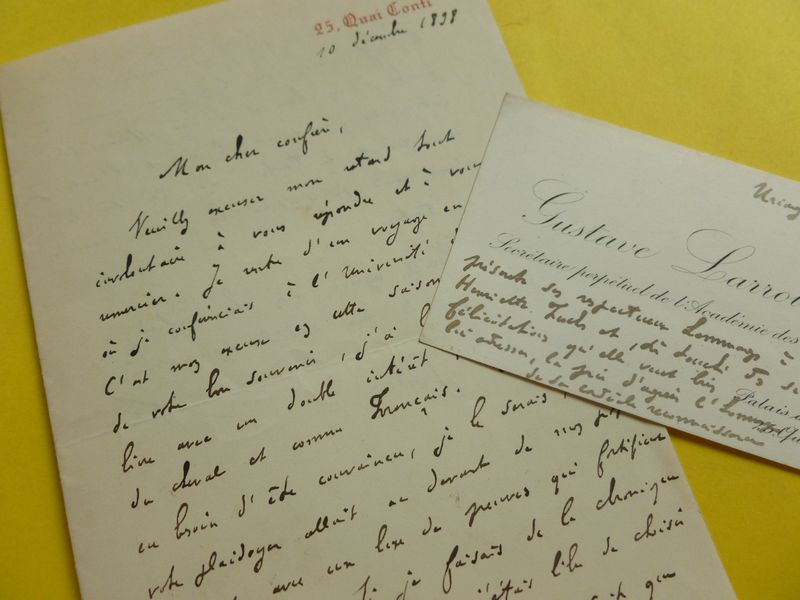 25, Quai Conti
10 décembre 1898
Mon cher confrère,
Veuillez excuser mon retard tout
involontaire à vous répondre et à vous
remercier. Je rentre d'un voyage en
où je conférenciais à l'Université
C'est mon excuse
de votre bon souvenir, j'ai
livre avec un double intérêt
du cheval et comme Français.
en besoin d'être convaincu, je le serais
votre plaidoyer allait au devant de mes
avec un luxe de preuves qui fortifient
si je faisais de la chronique
libre de choisir
que
Uriag
Gustave Larrou
Secrétaire perpétuel de l'Académie des
présente ses respectueux hommages à
Henriette Fuchs et, très touché des
félicitations qu'elle veut bien
lui adresser, la prie d'agréer l'hommage
de sa cordiale reconnaissance
Palais